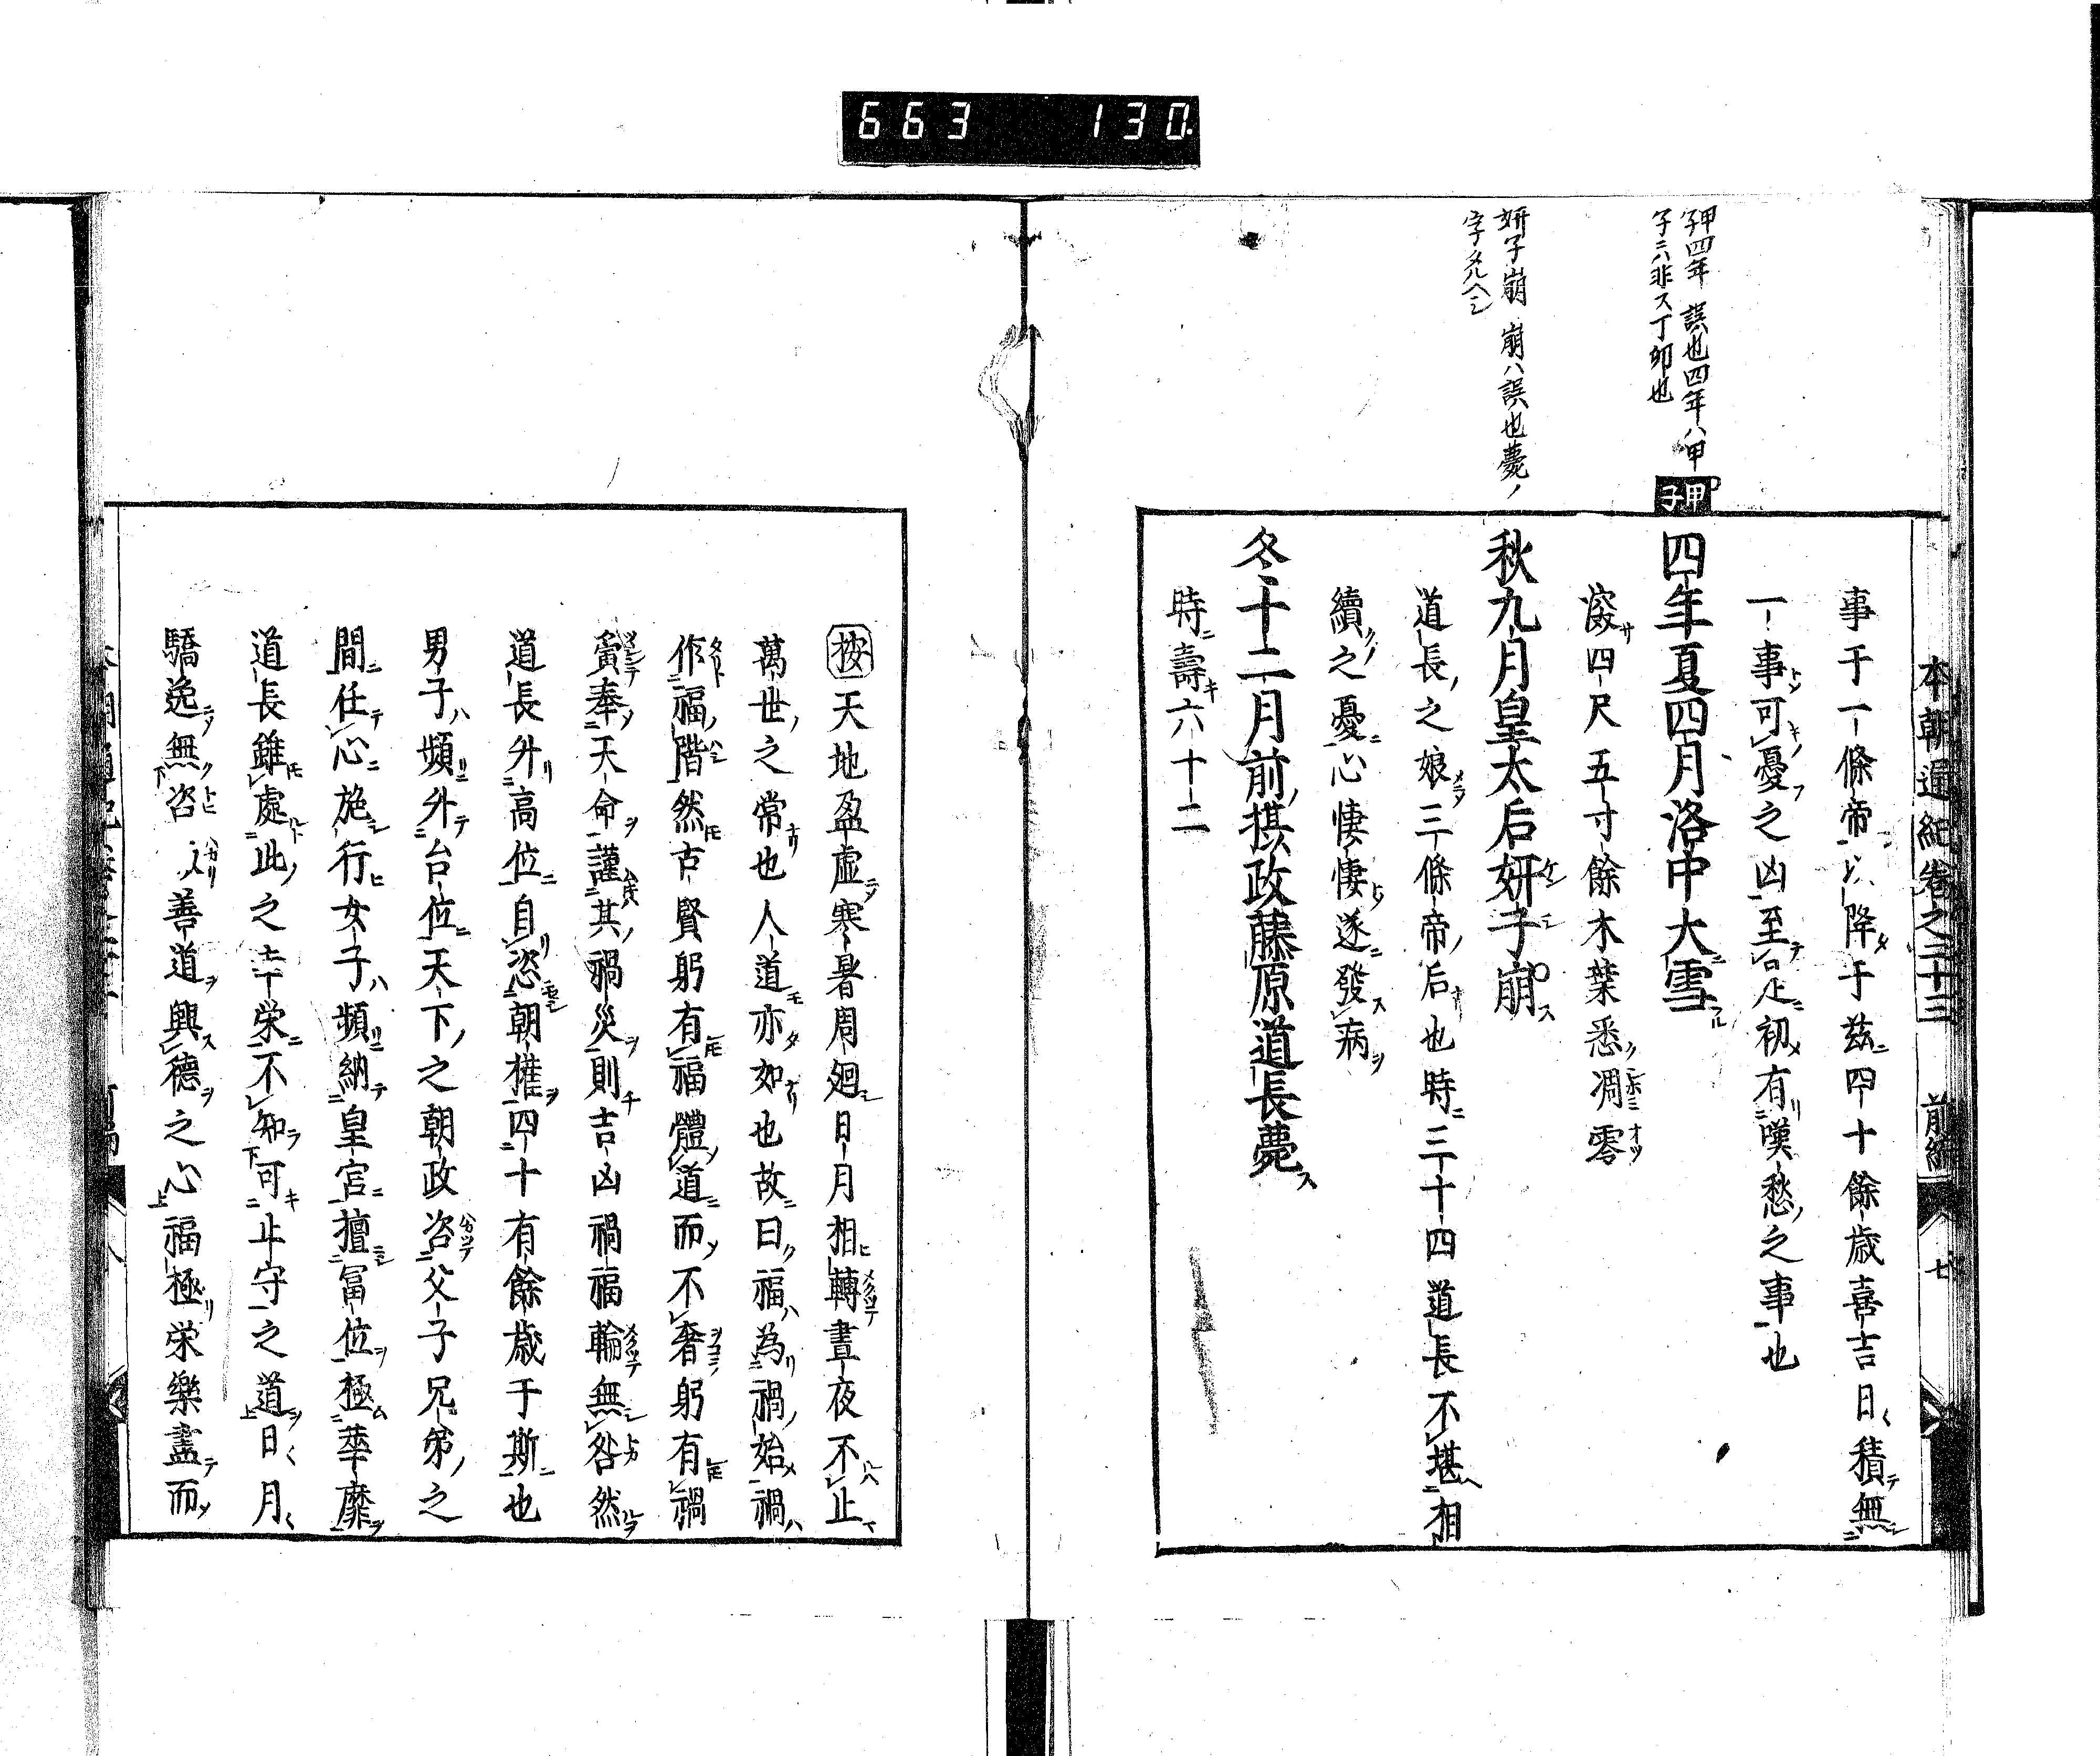 663 130
本朝通紀卷之二十三 前編 七
事于一條帝以降于茲四十餘歳喜吉日〱積無
一事可憂之凶至是初有嘆愁之事也
甲子四年 誤也四年ハ甲
子ニハ非ス丁卯也
甲子
四年夏四月洛中大雪
深四尺五寸餘木葉悉凋零
妍子崩 崩ハ誤也薨ノ
字タルヘシ
秋九月皇太后妍子崩
道長之娘三條帝后也時三十四道長不堪相
續之憂心悽悽遂發病
冬十二月前摂政藤原道長薨
時壽六十二
按天地盈虛寒暑周廻日月相轉晝夜不止
萬世之常也人道亦如也故曰福為禍始禍
作福階然古賢躬有福體道而不奢躬有禍
寅奉天命謹其禍災則吉凶禍福輪無咎然
道長外高位自恣朝權四十有餘歳于斯也
男子頻外台位天下之朝政咨父子兄弟之
間任心施行女子頻納皇宮擅冨位極華靡
道長雖處此之幸栄不知可止守之道日〱月〱
驕逸無咨善道興德之心福極栄樂盡而